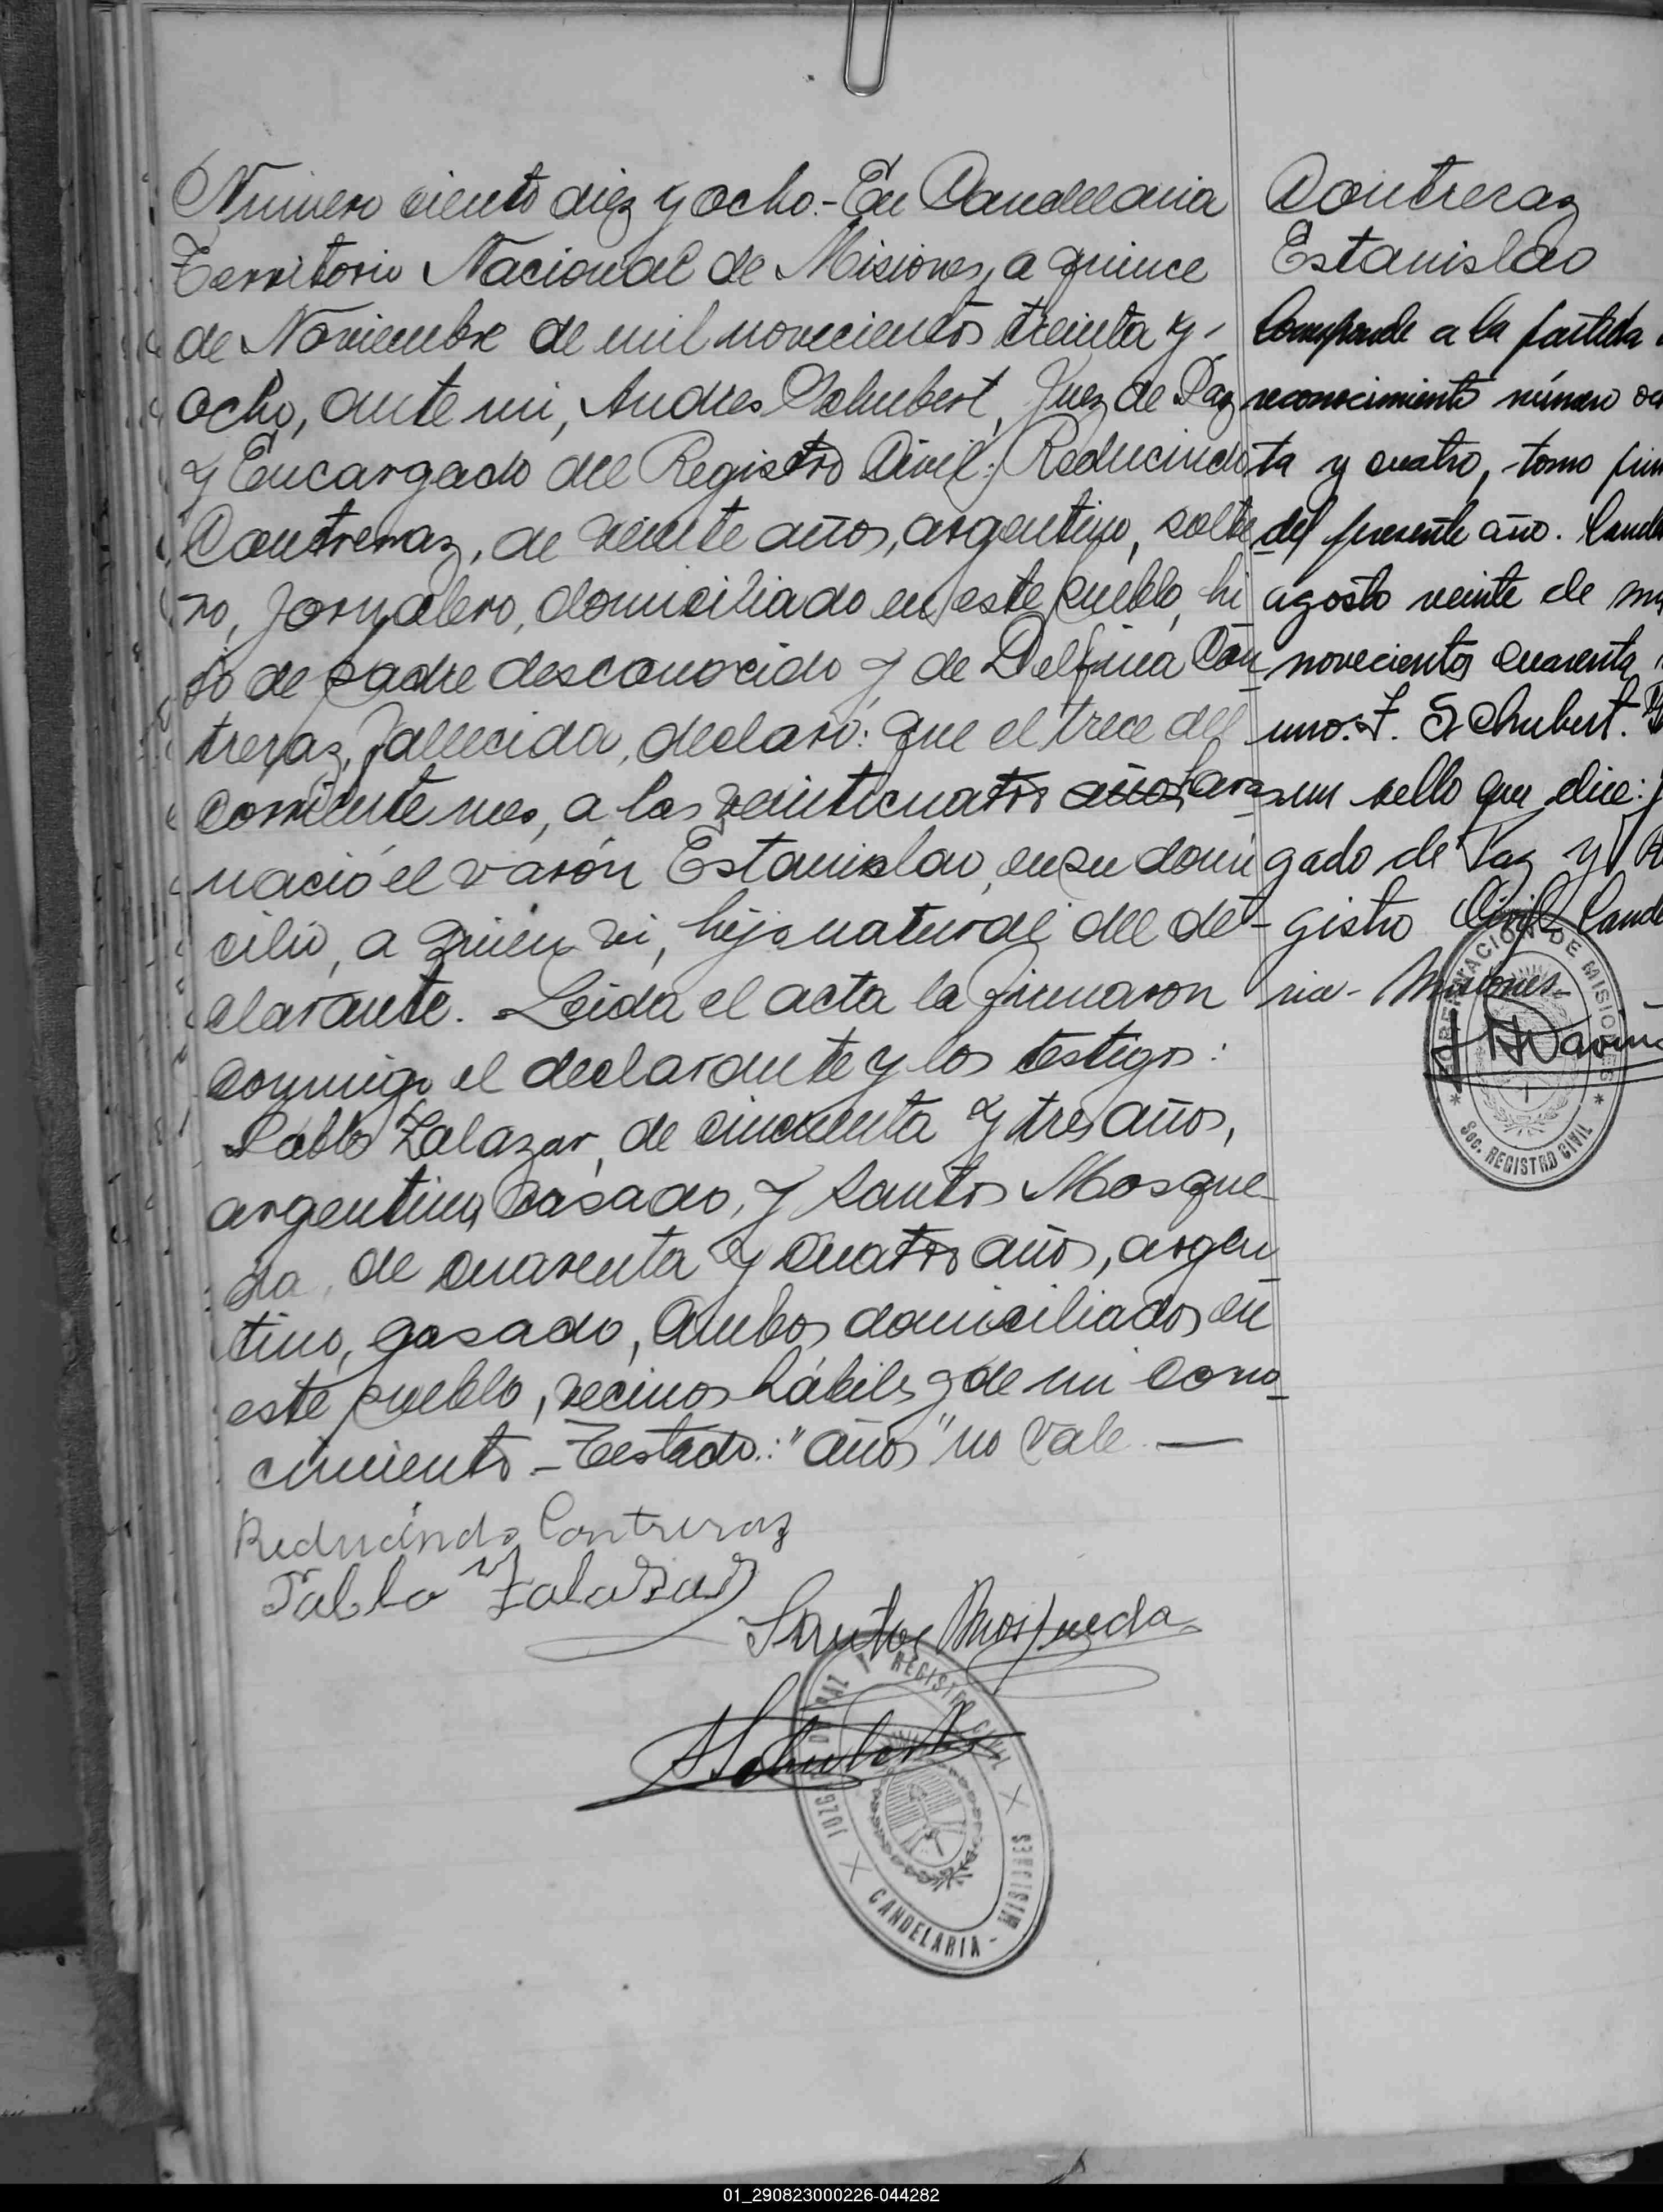 Número ciento diez y ocho.- En Candelaria
Territorio Nacional de Misiones, a quince
de Noviembre de mil novecientos treinta y
ocho, ante mi, Andres Schubert, Juez de Paz
y Encargado del Registro Civil: Reducindo
Contreraz, de veinte años, argentino, solte
ro, jornalero, domiciliado en este pueblo, hi
jo de padre desconocido y de Delfina Con
treraz, fallecida, declaró: que el trece del
corriente mes, a las veinticuatro años horas
nació el varón Estanislao, en su domi
cilio, a quien vi, hijo natural del de-
clarante. Leída el acta la firmaron
conmigo el declarante y los testigos:
Pablo Zalazar, de cincuenta y tres años,
argentino, casado, y Santos Mosque
da, de cuarenta y cuatro años, argen
tino, casado, ambos domiciliados en
este pueblo, vecinos hábiles y de mi cono
cimiento - Testado: "años" no vale —
Reducindo Contreraz
Pablo Zalazar
Santos Mosqueda
ASchubert
REGISTRO CIVIL
CANDELARIA - MISIONES
Contreraz
Estanislao
Corresponde a la partida
reconocimiento número
ta y cuatro, tomo
del presente año.
agosto veinte de
novecientos cuarenta
uno. F. Schubert.
un sello que dice:
gado de Paz y
gistro Civil
ria - Misiones
GOBERNACION DE MISIONES
Sec. REGISTRO CIVIL
01_290823000226-044282